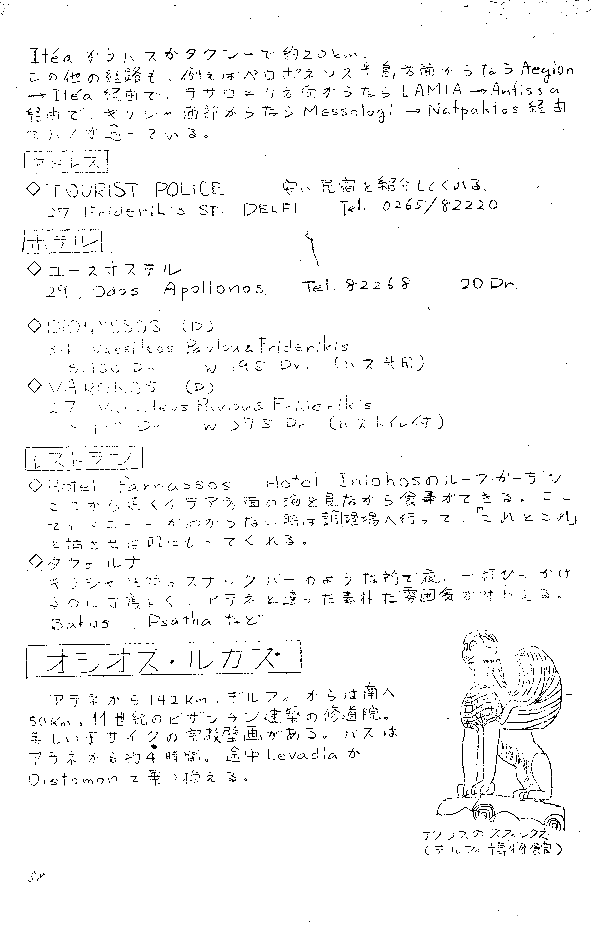 Itéa からバスかタクシーで約20km。
この他の経路も、例えばペロポネソス半島方面からなら Aegion
→ Itéa 経由で、テサロニキ方面からなら LAMIA → Amfissa
経由で、ギリシャ西部からなら Messologi → Nafpaktos 経由
でバスが通っている。
アドレス
◇ TOURIST POLICE 安い民宿を紹介してくれる。
27 Friderikis ST. DELFI Tel. 0265/82220
ホテル
◇ ユースホステル
29, Odos Apollonos Tel. 82268 20 Dr.
◇ DIONYSSOS (D)
34 Vassileos Pavlou & Friderikis
W 195 Dr. (バス共同)
◇ (D)
27 Pavlou & Friderikis
W 375 Dr (バストイレ付)
レストラン
◇ Hotel Parnassos Hotel Iniohos のルーフガーデン
ここから遠くイテア方面の海を見ながら食事ができる。ここ
でメニューがわからない時は調理場へ行って、「これとこれ」
と指させば皿にもってくれる。
◇ タヴェルナ
ギリシャ スナックバーのような物で夜、一杯ひっかけ
るのに丁度よく、アテネと違った素朴な雰囲気が味わえる。
Psatha など
オシオス・ルカス
アテネから142km、デルフィからは南へ
50km、11世紀のビザンチン建築の修道院。
美しいモザイクの宗教壁画がある。バスは
アテネから約4時間。途中 Levadia か
Distomon で乗り換える。
ナクソスのスフィンクス
(デルフィ博物館)